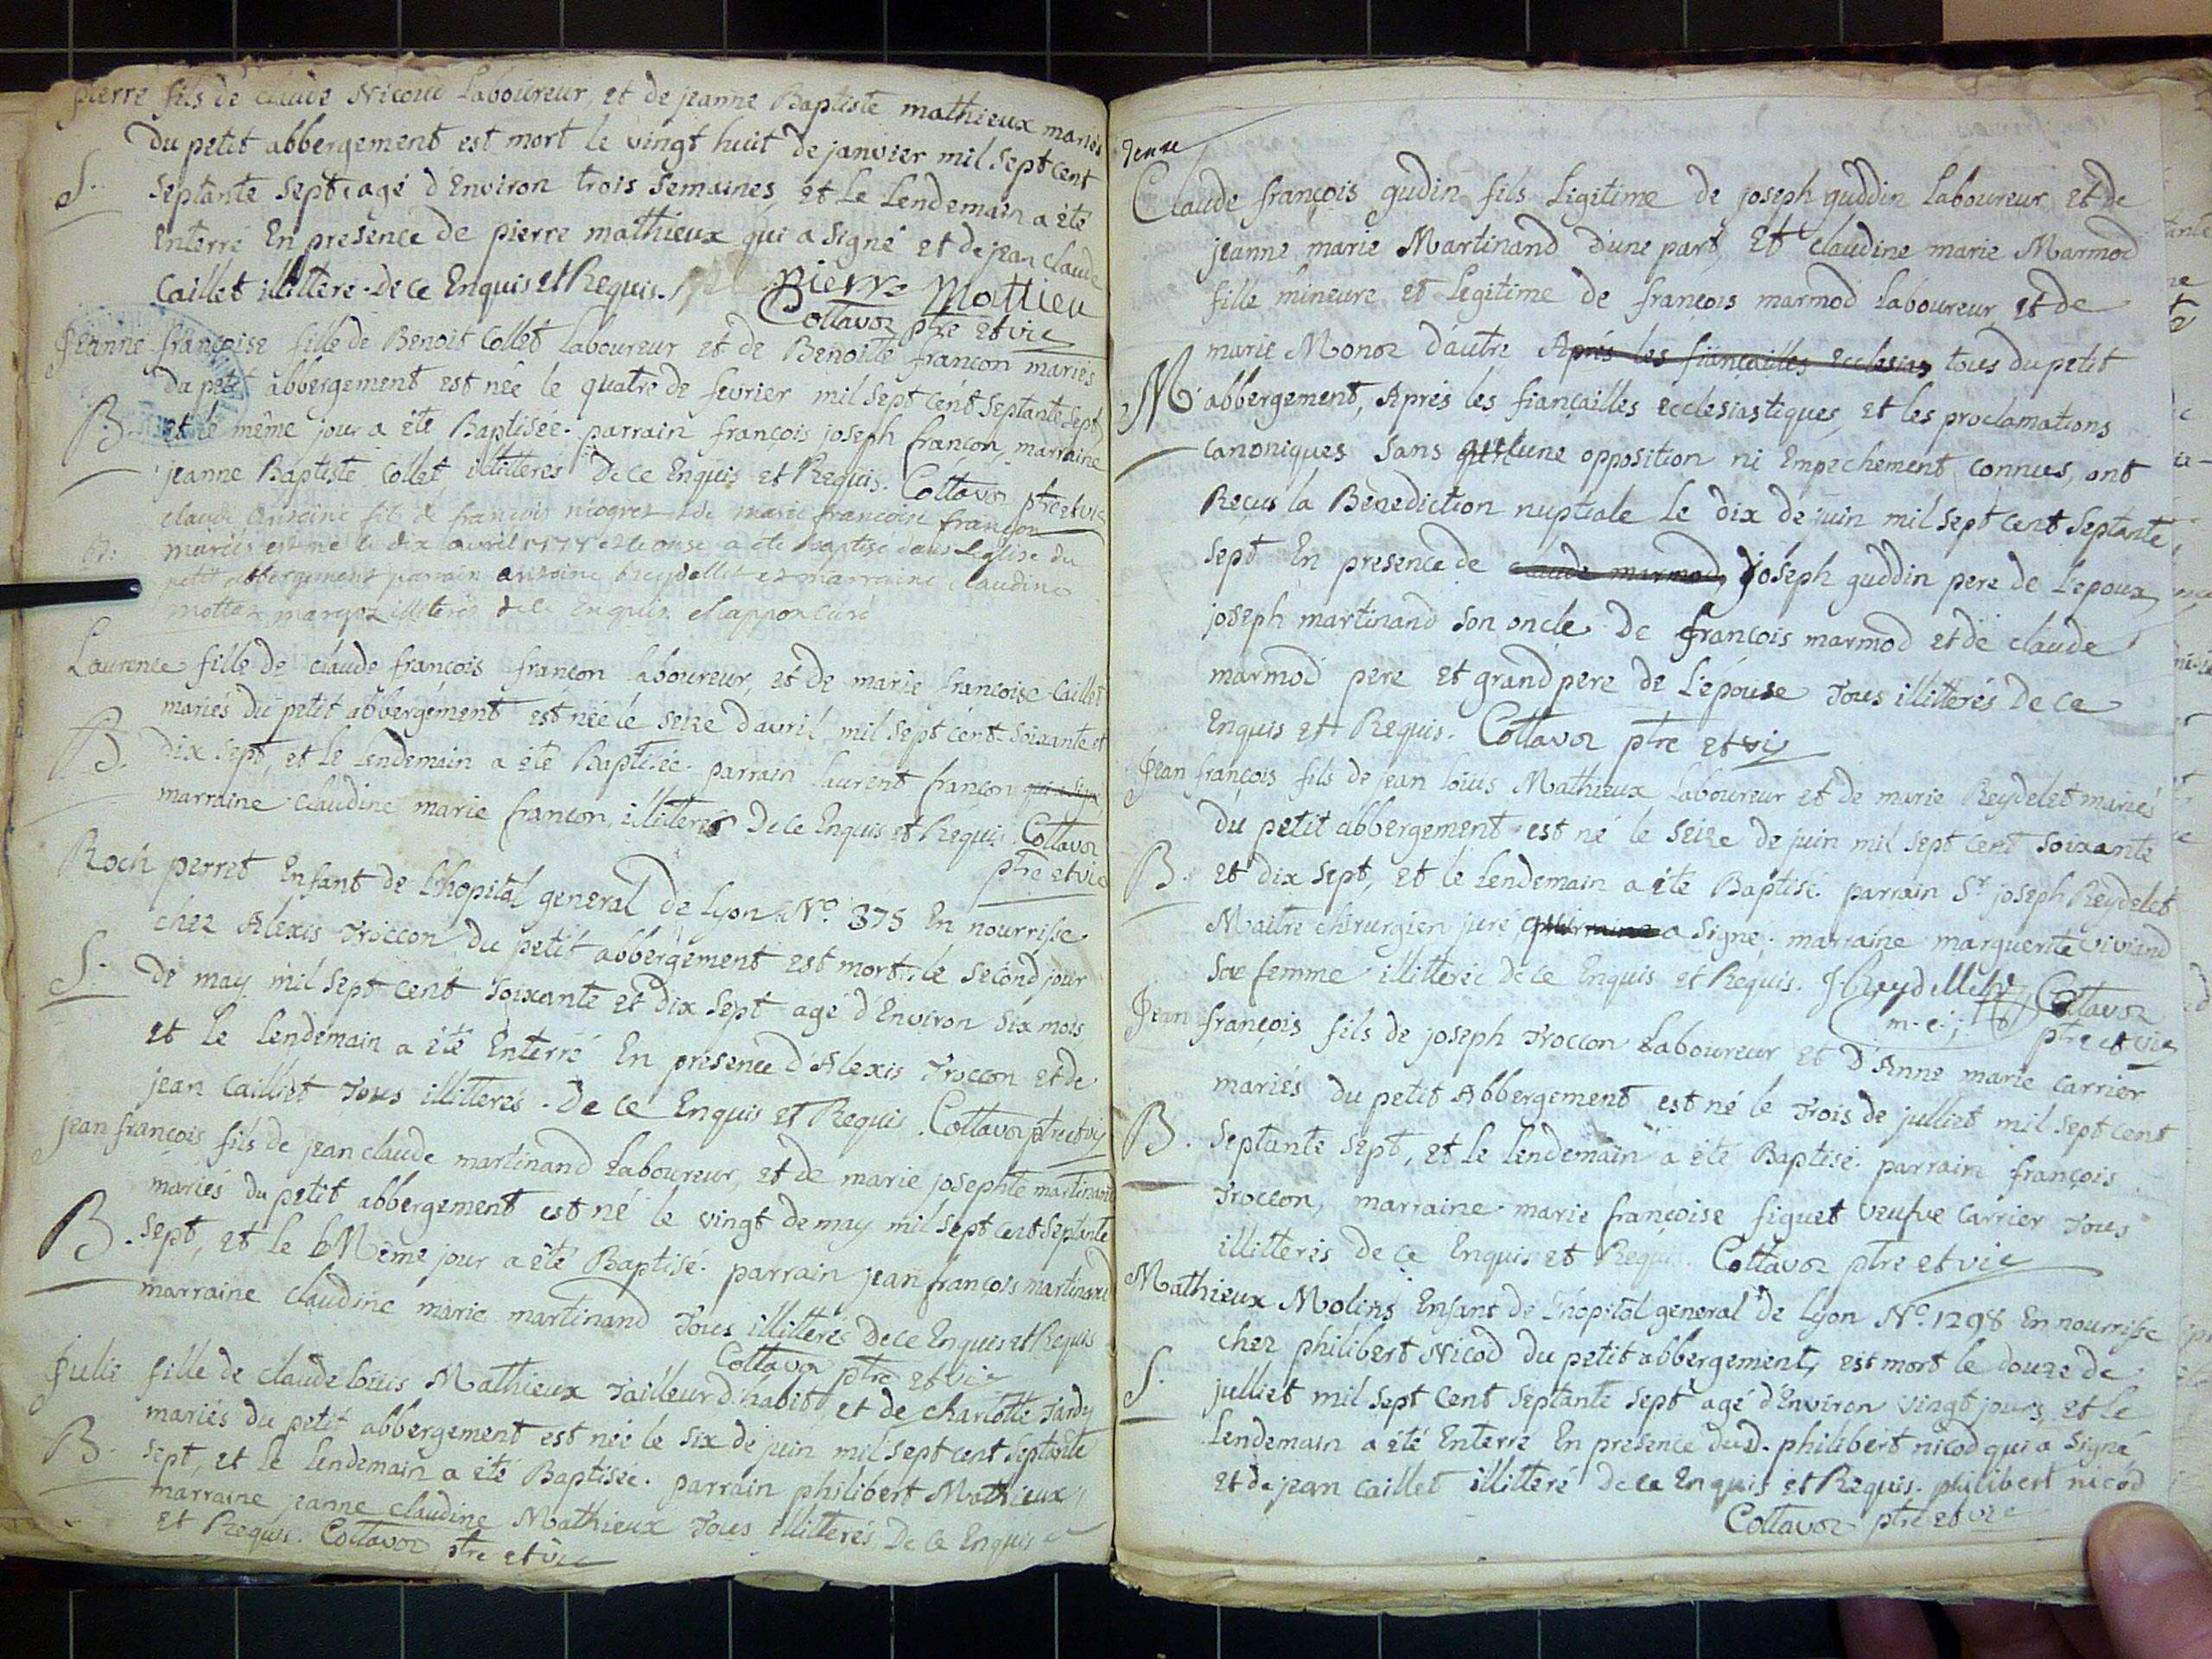 pierre fils de claude Nicoud Laboureur, et de jeanne Baptiste mathieux mariés
du petit abbergement est mort le vingt huit de janvier mil sept cent
S. septante sept, agé d'Environ trois semaines, et Le Lendemain a été
Enterré En presence de pierre mathieux qui a signé et de jean claude
Caillet illittere. De ce Enquis et Requis. pierre Mattieu
Cottavoz ptre et vic
Jeanne françoise fille de Benoit Collet Laboureur et de Benoite françon mariés
du petit abbergement est née le quatre de fevrier mil sept cent septante sept
B. et le même jour a été Baptisée. parrain françois joseph françon, marraine
jeanne Baptiste Collet illitterés De ce Enquis et Requis. Cottavoz ptre et vic
claude antoine fils de françois niogret et de marie françoise françon
B. mariés est né le dix avril 1777 et le onse a eté baptisé dans Leglise du
petit abbergement parrain antoine breydellet et marraine claudine
mottaz margoz illiterés de ce Enquis. chappon curé
Laurence fille de claude françois françon laboureur, et de marie francoise Caillet
mariés du petit abbergement est née le seize d'avril mil sept cent soixante et
B. dix sept, et le lendemain a été Baptisée. parrain laurent françon qui a signé
marraine claudine marie françon, illitterés De ce Enquis et Requis. Cottavoz
ptre et vic
Roch perret Enfant de L'hopital general de Lyon No. 375 En nourrisse
chez Alexis Troccon du petit abbergement est mort le second jour
S. de may mil sept cent soixante et dix sept agé d'Environ six mois,
et le lendemain a été Enterré En presence d'Alexis Troccon et de
jean Cailliet Tous illitterés. De ce Enquis et Requis. Cottavoz ptre et vic
jean françois fils de jean claude martinand Laboureur, et de marie josephte martinand
mariés du petit abbergement est né le vingt de may mil sept cent septante
B. sept, et le Même jour a été Baptisé. parrain jean francois martinand
marraine claudine marie martinand Tous illitterés De ce Enquis et Requis
Cottavoz ptre et vic
Julie fille de claude louis Mathieux Tailleur d'habits, et de charlotte Tardy
mariés du petit abbergement est née le six de juin mil sept cent septante
B. sept, et le lendemain a été Baptisée. parrain philibert Mathieux,
marraine jeanne claudine Mathieux Tous illitterés De ce Enquis
et Requis. Cottavoz ptre et vic
Claude françois gudin fils Legitime de joseph guddin Laboureur et de
jeanne marie Martinand d'une part, Et claudine marie Marmod
fille mineure et Legitime de françois marmod Laboureur et de
marie Monoz d'autre Aprés les fiançailles Ecclesias tous du petit
M. abbergement, Aprés les fiançailles Ecclesiastiques, et les proclamations
canoniques sans qu'une opposition ni Empechement connus, ont
Reçus la Benediction nuptiale Le dix de juin mil sept cent septante
sept En presence de claude marmod, joseph guddin pere de Lepoux,
joseph martinand son oncle De françois marmod et de claude
marmod pere et grand pere de L'épouse Tous illitterés De ce
Enquis et Requis. Cottavoz ptre et vic
Jean françois fils de jean loüis Mathieux Laboureur et de marie Reydelet mariés
du petit abbergement est né le seize de juin mil sept cent soixante
B. et dix sept, et le Lendemain a été Baptisé. parrain Sr joseph Reydelet
Maitre chirurgien juré, a signé. marraine marguerite Viviand
sa femme illitterée De ce Enquis et Requis. J. Reydellet Cottavoz
ptre et vic
Jean françois fils de joseph Troccon Laboureur et D'Anne marie Carrier
mariés du petit Abbergement est né le Trois de julliet mil sept cent
B. septante sept, et le lendemain a été Baptisé. parrain françois
Troccon, marraine marie françoise figuet veufve Carrier Tous
illitterés de ce Enquis et Requis. Cottavoz ptre et vic
Mathieux Molins Enfant de L'hopital general de Lyon No. 1298 En nourrisse
chez philibert Nicod du petit abbergement, est mort le douze de
S. julliet mil sept cent septante sept agé d'Environ vingt jours, et le
Lendemain a été Enterré En presence dud. philibert nicod qui a signé
et de jean Caillet illitteré De ce Enquis et Requis. philibert nicod
Cottavoz ptre et vic